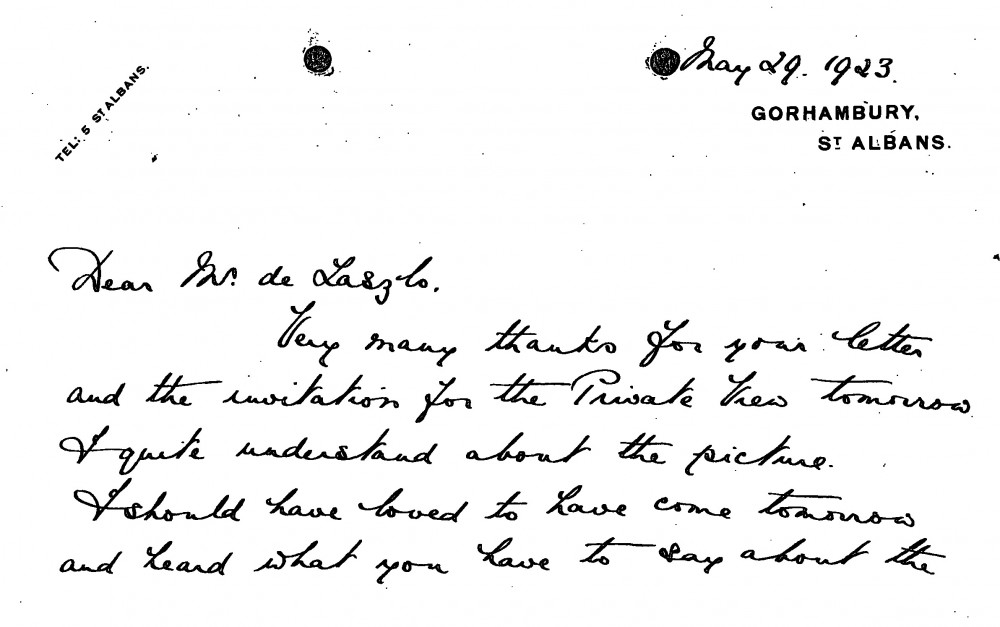 TEL: 5 ST ALBANS.
May 29. 1923.
GORHAMBURY,
ST ALBANS.
Dear Mr. de Laszlo.
Very many thanks for your letter
and the invitation for the Private View tomorrow
I quite understand about the picture.
I should have loved to have come tomorrow
and heard what you have to say about the